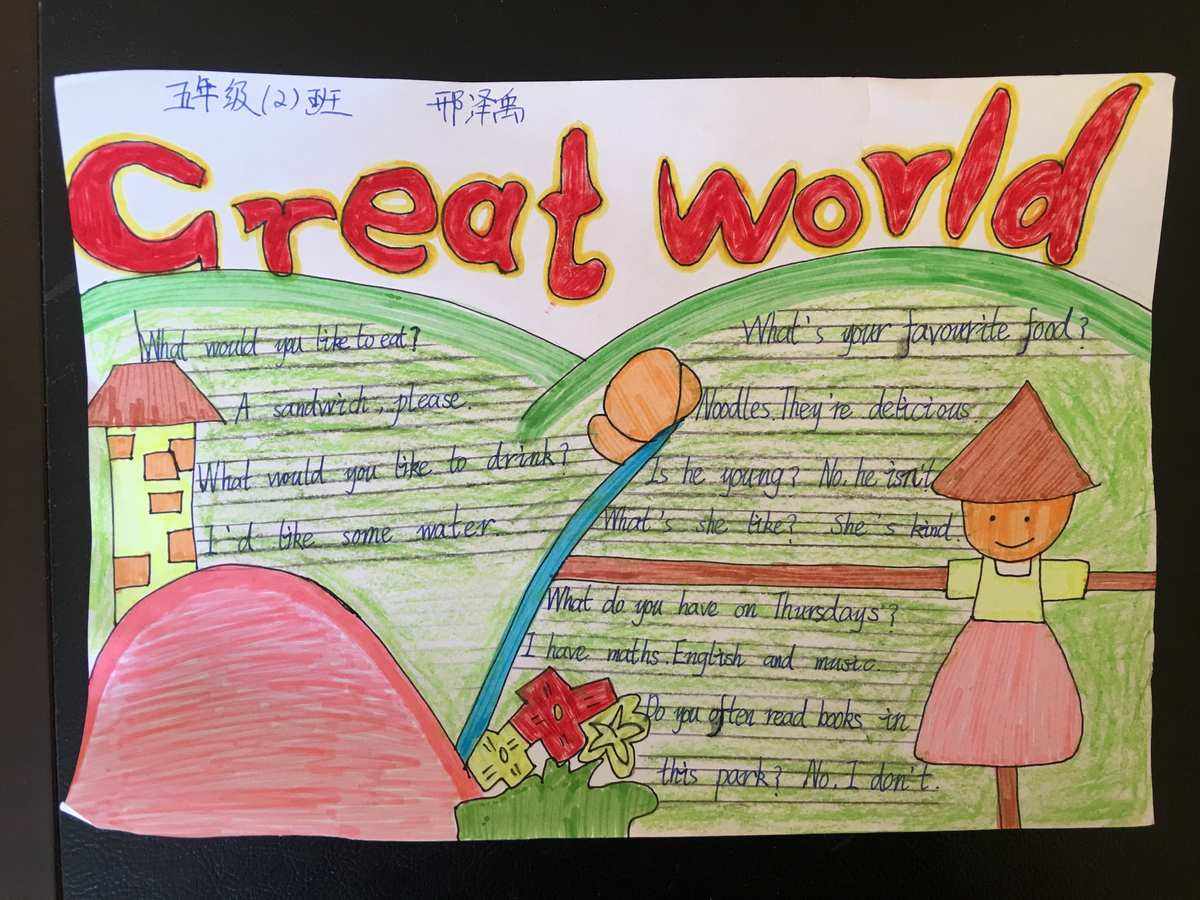 五年级(2)班 邢泽禹
Great world
What would you like to eat?
A sandwich, please.
What would you like to drink?
I'd like some water.
What's your favourite food?
Noodles. They're delicious.
Is he young? No, he isn't.
What's she like? She's kind.
What do you have on Thursdays?
I have maths. English and music.
Do you often read books in
this park? No. I don't.